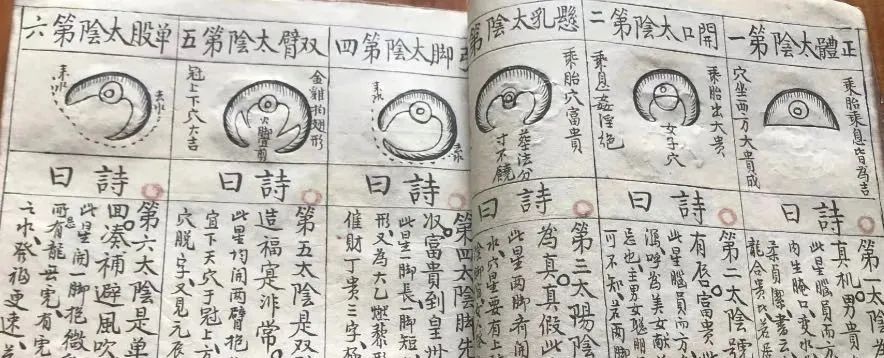 正體太陰第一
乘胎乘息皆為吉
穴坐兩方大貴成
詩曰
第一太陰為
真机男貴
此星腦員而方
內生腌口変水
柔貞潔書云
龍合貴
開口太陰第二
乘胎出大貴
乘息姦淫絕
女子穴
詩曰
第二太陰
有唇富貴
此星腦員而方
為美女献
忌也主男女
可不知若兩脚
懸乳太陰第
乘胎穴富貴
葬法分
寸不饒
詩曰
第三太陽陰
為真真假
此星兩脚齐開
水穴星要有上
脚太陰第四
耒水
詩曰
第四太陰脚先
収富貴到皇州
此星一脚長一脚短
形又為大乙燃藜形
催財丁貴三字
双臂太陰第五
金雞拍翅形
冠上下穴大吉
詩曰
第五太陰是双
造福寔非常
此星均開兩臂抱
宜下天穴于冠上方
穴脱字又見元辰
単股太陰第六
耒水
去水
詩曰
第六太陰是単
回凑補避風吹
此星開一脚抱微
所有龍無宪有宪
去水發福更速